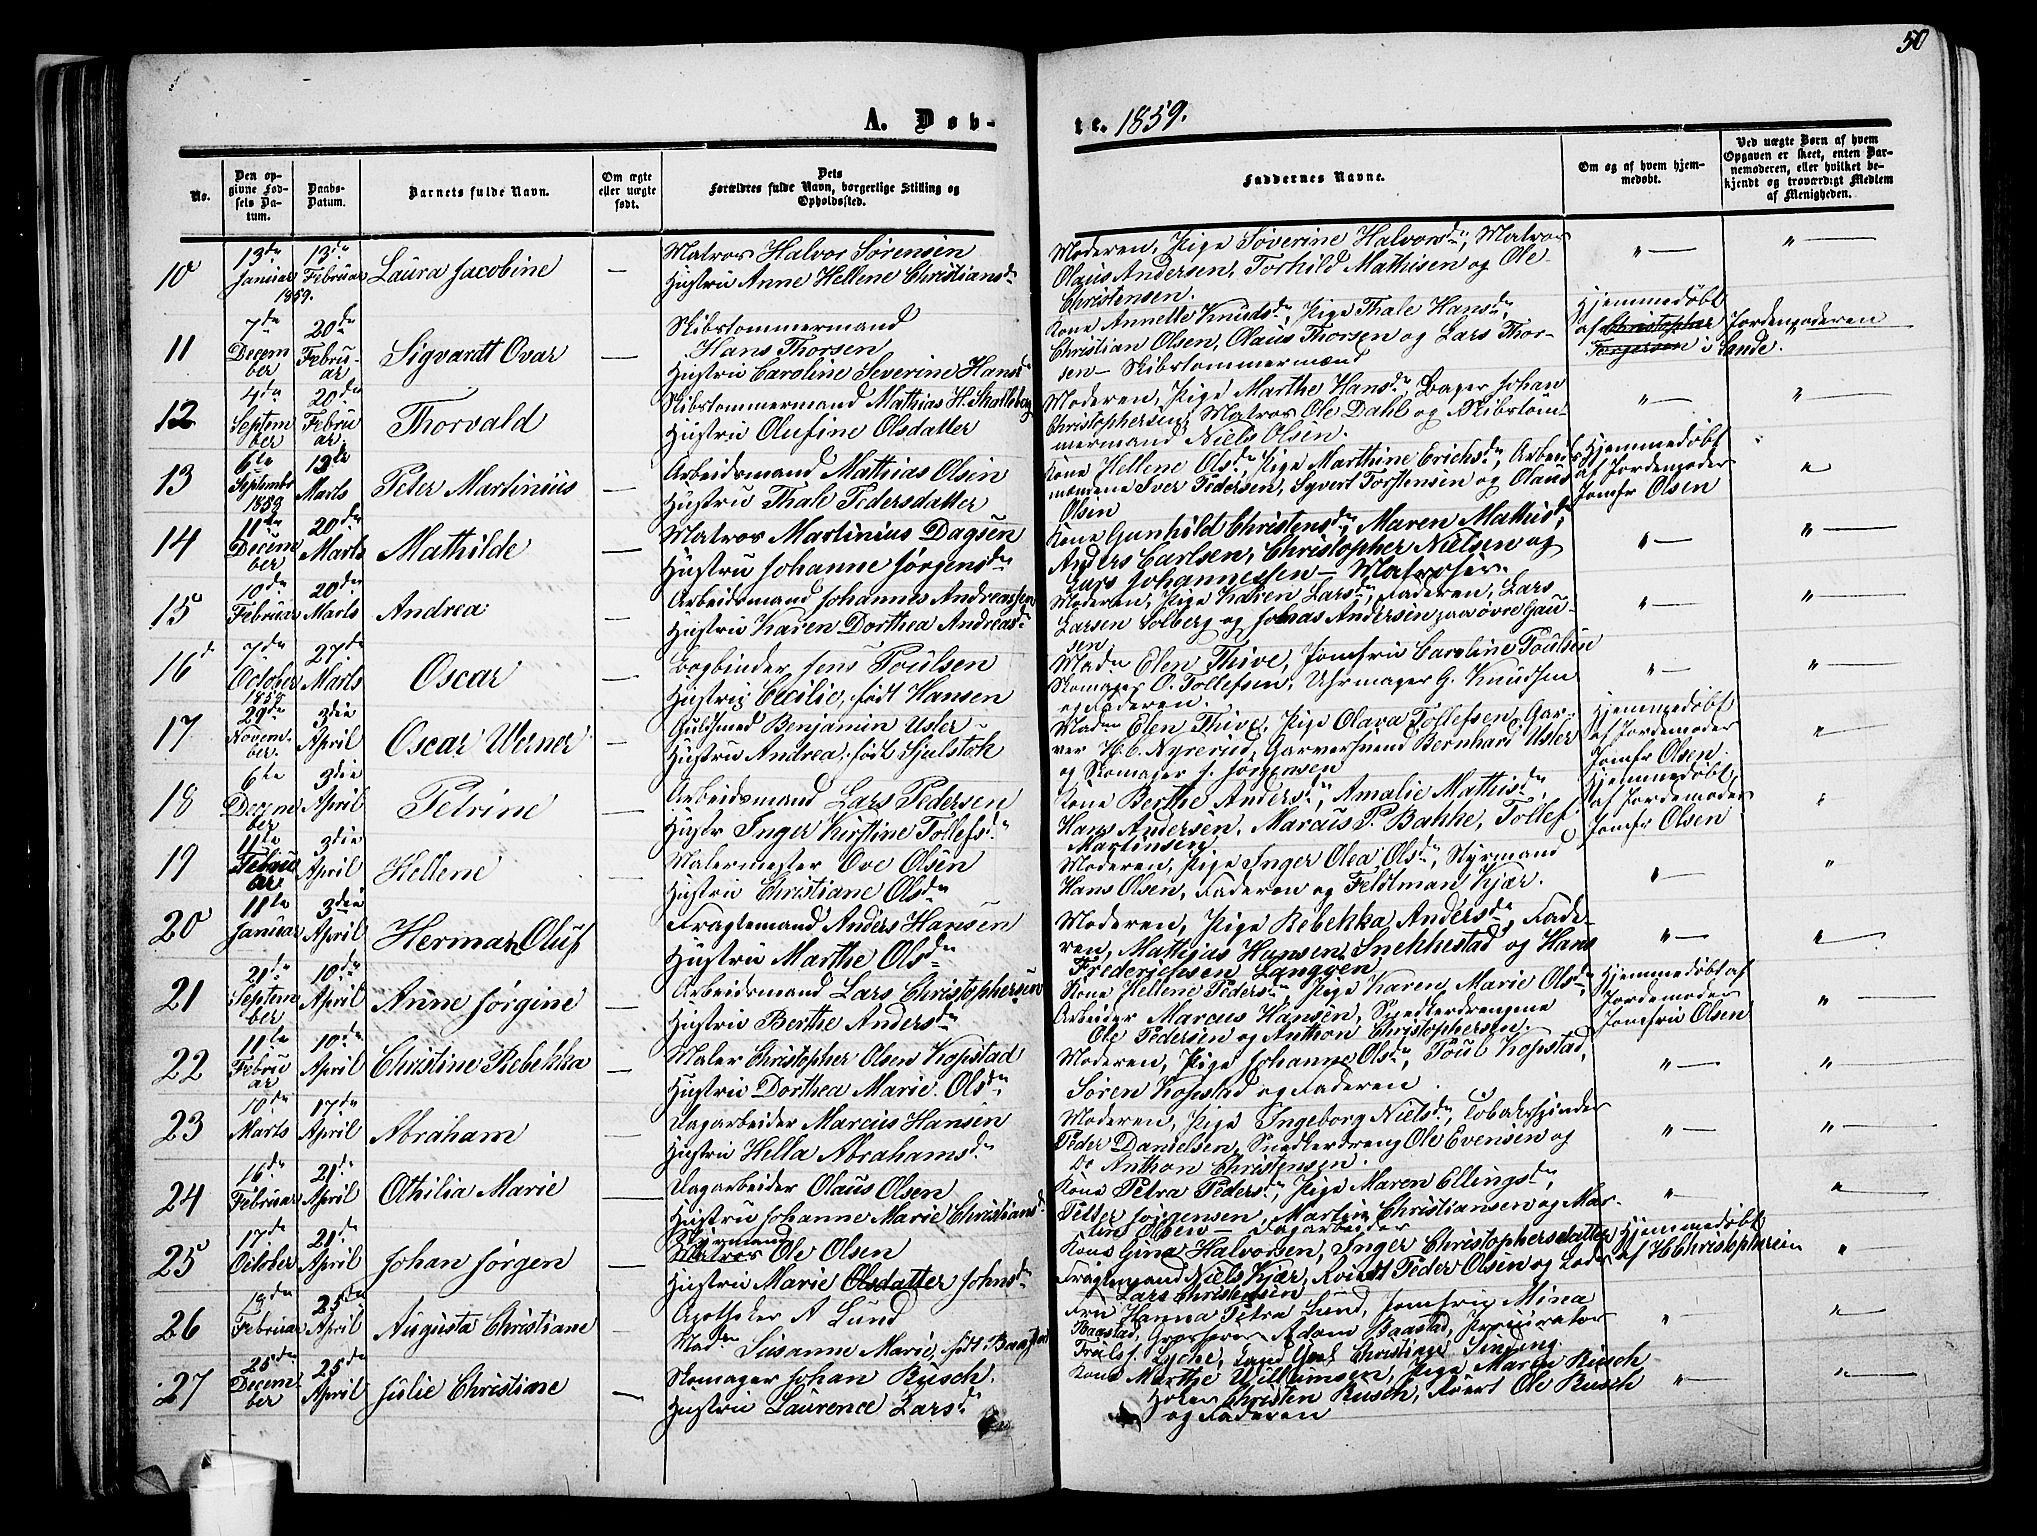 50
A. Døb-
te. 1859.
No.
Den op-
givne Fød-
sels Da-
tum.
Daabs-
Datum.
Barnets fulde Navn.
Om ægte
eller uægte
født.
Dets
Forældres fulde Navn, borgerlige Stilling og
Opholdssted.
Faddernes Navne.
Om og af hvem hjem-
medøbt.
Ved uægte Børn af hvem
Opgaven er skeet, enten Bar-
nemoderen, eller hvilket be-
kjendt og troværdigt Medlem
af Menigheden.
10
13de
Januar
1859.
13de
Februar
Laura Jacobine
—
Matros Halvor Sørensen
Hustru Anne Hellene Christiansdn
Moderen, Pige Søverine Halvorsdn, Matros
Olaus Andersen, Torhild Mathisen og Ole
Christensen.
"—
"—
11
7de
Decem
ber
20de
Febru-
ar
Sigvardt Ovar
—
Skibstømmermand
Hans Thorsen
Hustru Caroline Severine Hansdn
Kone Annette Knudsdn, Pige Thale Hansdn,
Christian Olsen, Olaus Thorsen og Lars Thor-
sen – Skibstømmermænd
Hjemmedøbt
af Christopher
Torgersen i Sande.
Jordemoderen
12
4de
Septem
ber
20de
Febru
ar.
Thorvald
—
Skibstømmermand Mathias H. Skalleberg
Hustru Olufine Olsdatter
Moderen, Pige Marthe Hansdn, Bager Johan
Christophersen, Matros Ole Dahl og Skibstøm-
mermand Niels Olsen.
"—
"
13
6te
Septembr
1859
13de
Marts
Peter Martinius
Arbeidsmand Mathias Olsen
Hustru Thale Pedersdatter
Kone Hellene Olsdn, Pige Marthine Erichsdn, Arbeids-
mændene Iver Pedersen, Syvert Torstensen og Olaus
Olsen
Hjemmedøbt
af Jordemoder
Jomfr Olsen
"
14
11te
Decem
ber
20de
Marts
Mathilde
—
Matros Martinius Dagsen
Hustru Johanne Jørgensdn
Kone Gunhild Christensdn, Maren Mathisdn,
Anders Carlsen, Christopher Nielsen og
Lars Johannessen – Matroser.
"—
"—
15
10de
Februar
20de
Marts
Andrea
—
Arbeidsmand Johannes Andreassen
Hustru Karen Dorthea Andreasdn
Moderen, Pige Karen Larsdn, Faderen, Lars
Larsen Solberg og Johas Andersen paa øvre Gau-
sen
"—
"—
16
7de
October
1858
27de
Marts
Oscar
Bogbinder Jens Poulsen
Hustru Cecilie, født Hansen
Madm Elen Thive, Jomfru Caroline Poulsen
Skomager O. Tollefsen, Uhrmager G. Knudsen
og Faderen.
"—
"—
17
29de
Novem-
ber.
3die
April
Oscar Werner
—
Guldsmed Benjamin Usler
Hustru Andrea, født Sjulstok
Madm Elen Thive, Pige Olava Tollefsen, Gar-
ver H. C. Nyrerud, Garversvend Bernhard Usler
og Skomager J. Jørgensen
Hjemmedøbt
af Jordemoder
Jomfr Olsen.
"
18
6te
Decem
ber
3die
April
Petrine
—
Arbeidsmand Lars Pedersen
Hustr Inger Kirstine Tollefsdn
Kone Berthe Andersdn, Amalie Mathisdn,
Hans Andersen, Marcus P. Bakke, Tollef
Martinsen
Hjemmedøbt
af Jordemoder
Jomfr Olsen
"
19
11te
Februar
3die
April
Hellene
—
Malermester Ove Olsen
Hustru Christiane Olsdn
Moderen, Pige Inger Olea Olsdn, Styrmand
Hans Olsen, Faderen og Feldtman Kjær.
"—
"
20
11te
Januar
3die
April
Herman Oluf
Fragtemand Anders Hansen
Hustru Marthe Olsdn
Moderen, Pige Rebekka Andersdn, Fade-
ren, Mathias Hansen Snekkestad og Hans
Frederichsen Langgen
"—
"—
21
21de
Septem
ber
10de
April
Anne Jørgine
—
Arbeidsmand Lars Christophersen
Hustru Berthe Andersdn
Kone Hellene Pedersdn, Pige Karen Marie Olsdn,
Arbeider Marcus Hansen, Snedkerdrengene
Ole Pedersen og Anthon Christophersen.
Hjemmedøbt af
Jordemoder
Jomfru Olsen
"—
22
11te
Febru
ar
10de
April
Christine Rebekka
—
Maler Christopher Olsen Kopstad
Hustru Dorthea Marie Olsdn
Moderen, Pige Johanne Olsdn, Poul Kopstad,
Søren Kopstad og Faderen.
"—
"—
23
10de
Marts
17de
April
Abraham
—
Dagarbeider Marcus Hansen
Hustru Hella Abrahamsdn
Moderen, Pige Ingeborg Nielsdn, Tobakspinder
Peder Danielsen, Snedkerdreng Ole Evensen og
Do Anthon Christensen.
"—
"—
24
16de
Februar
21de
April
Othilia Marie
—
Dagarbeider Olaus Olsen
Hustru Johanne Marie Christiansd
Kone Petra Pedersdn, Pige Maren Ellingsdn,
Petter Jørgensen, Martin Christiansen og Mar-
tin Olsen – Dagarbeider
"—
"—
25
17de
October
21de
April
Johan Jørgen
—
Styrmand
Matros Ole Olsen
Hustru Marie Olsdatter Johnsdn
Kone Gina Halvorsen, Inger Christophersdatter
Fragtemand Niels Kjær, Peder Olsen og Lods
Lars Christensen
Hjemmedøbt
af H Christophersen
"
26
19de
Februar
25de
April
Augusta Christiane
—
Apotheker A Lund
Madm Susanne Marie, født Baastad
Fru Hanna Petra Lund, Jomfru Mina
Baastad, Grosserer Adam Baastad, Procurator
Lyche, Christian Sinding
"
"—
27
25de
Decem
ber
25de
April
Julie Christiane
—
Skomager Johan Rusch.
Hustru Laurence Larsd
Kone Marthe Willumsen, Pige Maren Rusch
Christen Rusch, Ole Rusch
og Faderen
"—
"—